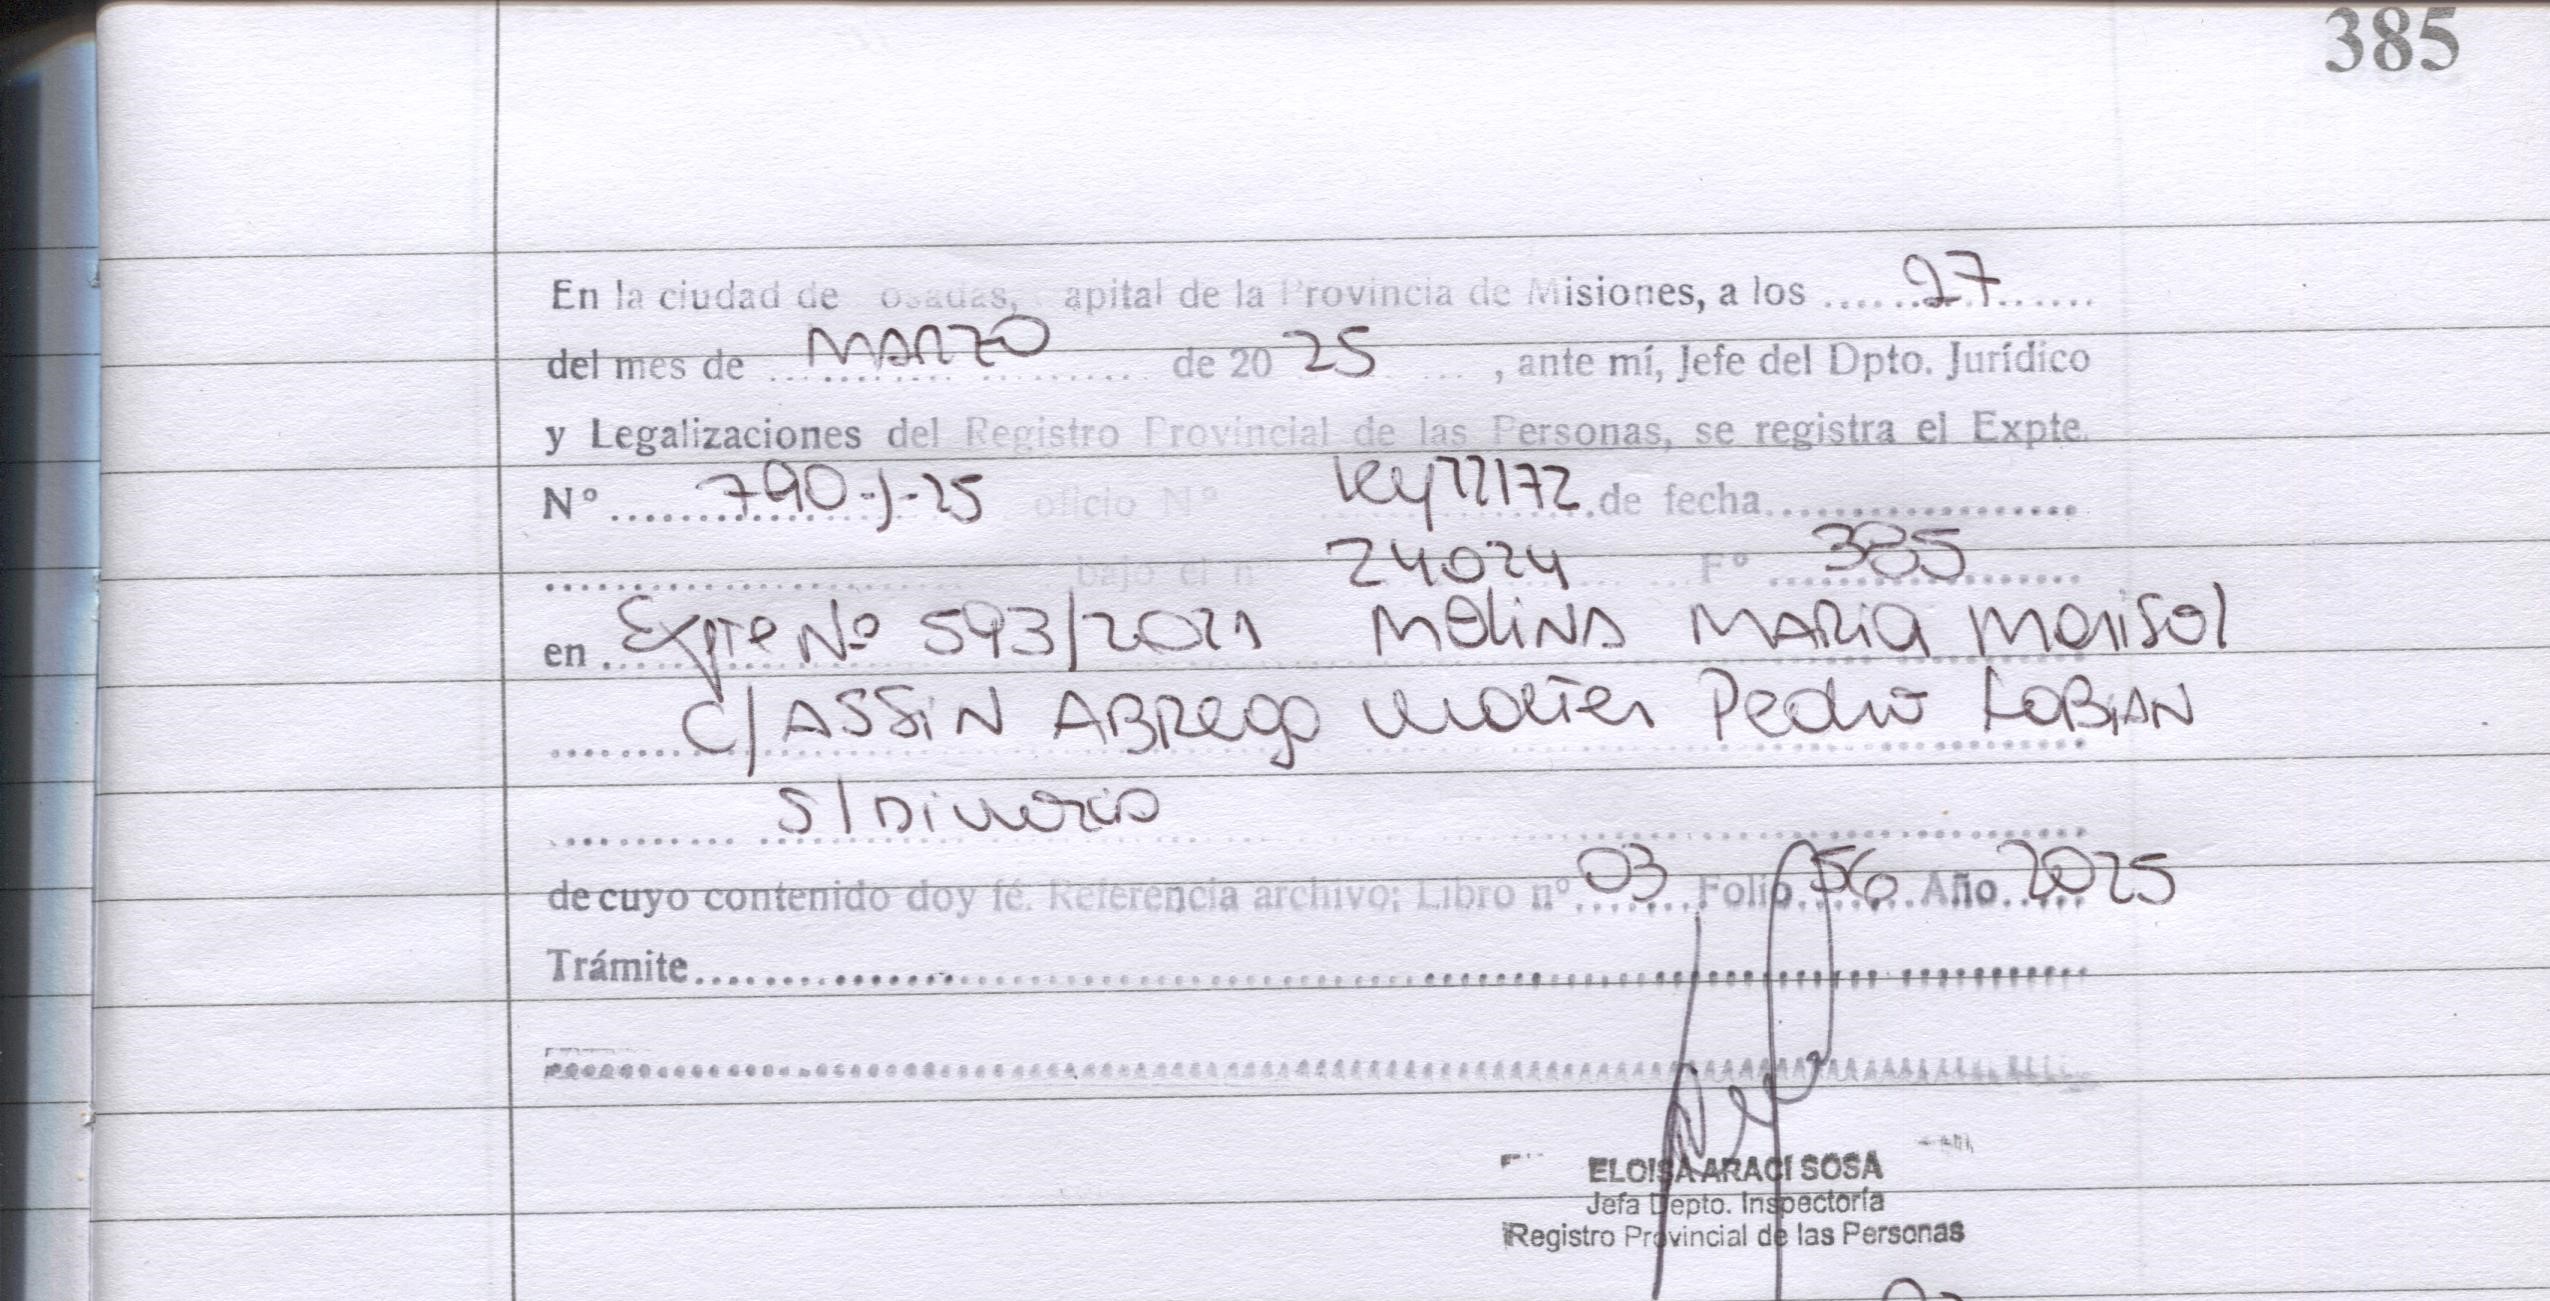 385
En la ciudad de osadas, apital de la Provincia de Misiones, a los ...... 27 ......
del mes de ... MARZO ... de 20 25 ... , ante mí, Jefe del Dpto. Jurídico
y Legalizaciones del Registro Provincial de las Personas, se registra el Expte.
Nº ... 790-J-25 oficio Nº ley 22172 de fecha..................
.................. bajo el n 24024 ...... Fº ... 385 ......
en ... Expte Nº 593/2021 MOLINA MARIA MARISOL
...... C/ ASSIN ABREGO WALTER Pedro FABIAN
.......... S/ DIVORCIO ..........
de cuyo contenido doy fé. Referencia archivo; Libro nº 03 Folio 56 Año 2025
Trámite..................
ELOISA ARACI SOSA
Jefa Depto. Inspectoría
Registro Provincial de las Personas